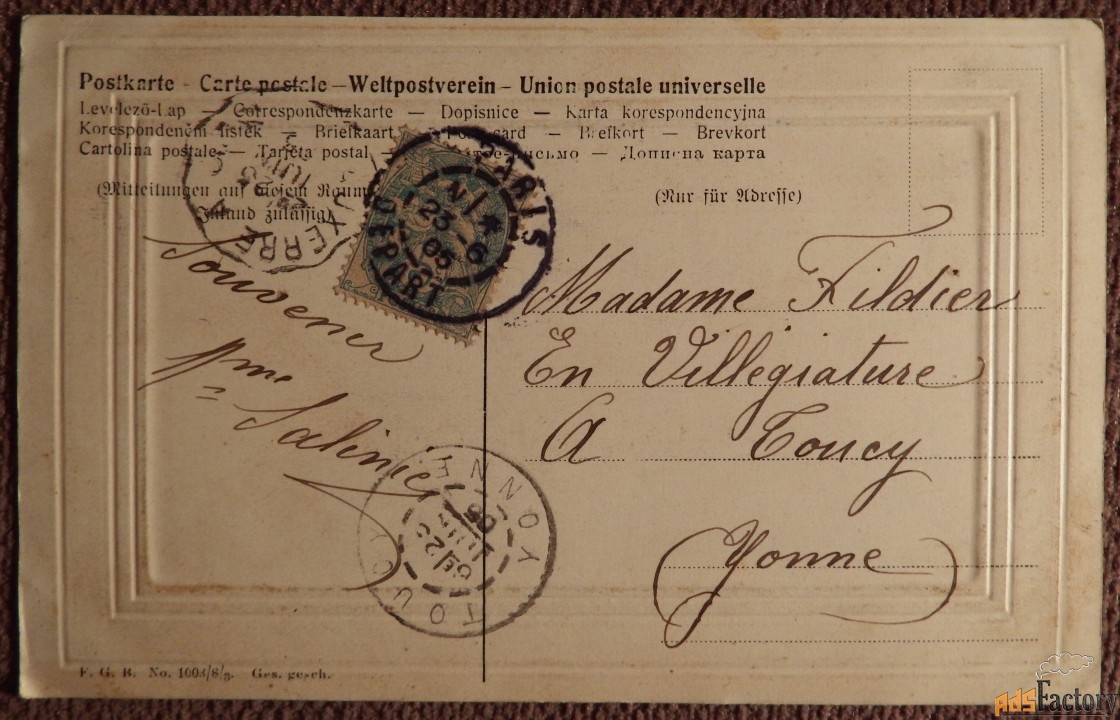 Postkarte - Carte postale — Weltpostverein - Union postale universelle
Levelező-Lap — Correspondenzkarte — Dopisnice — Karta korespondencyjna
Korespondenčni listek — Briefkaart — Post card — Brefkort — Brevkort
Cartolina postale — Tarjeta postal — — Дописна карта
(Mitteilungen auf diesem Raum
Inland zulässig)
(Nur für Adresse)
AUXERRE
PARIS
23
05
DEPART
Souvenir
Mme Salinier
Madame Fildier
En Villegiature
A Toucy
Yonne
TOUCY YONNE
F. G. B. No. 1003/8/3. Ges. gesch.
AdsFactory